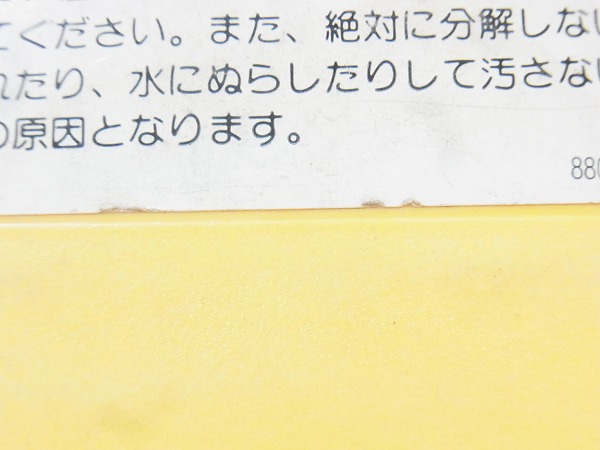 てください。また、絶対に分解しない
れたり、水にぬらしたりして汚さない
の原因となります。
880